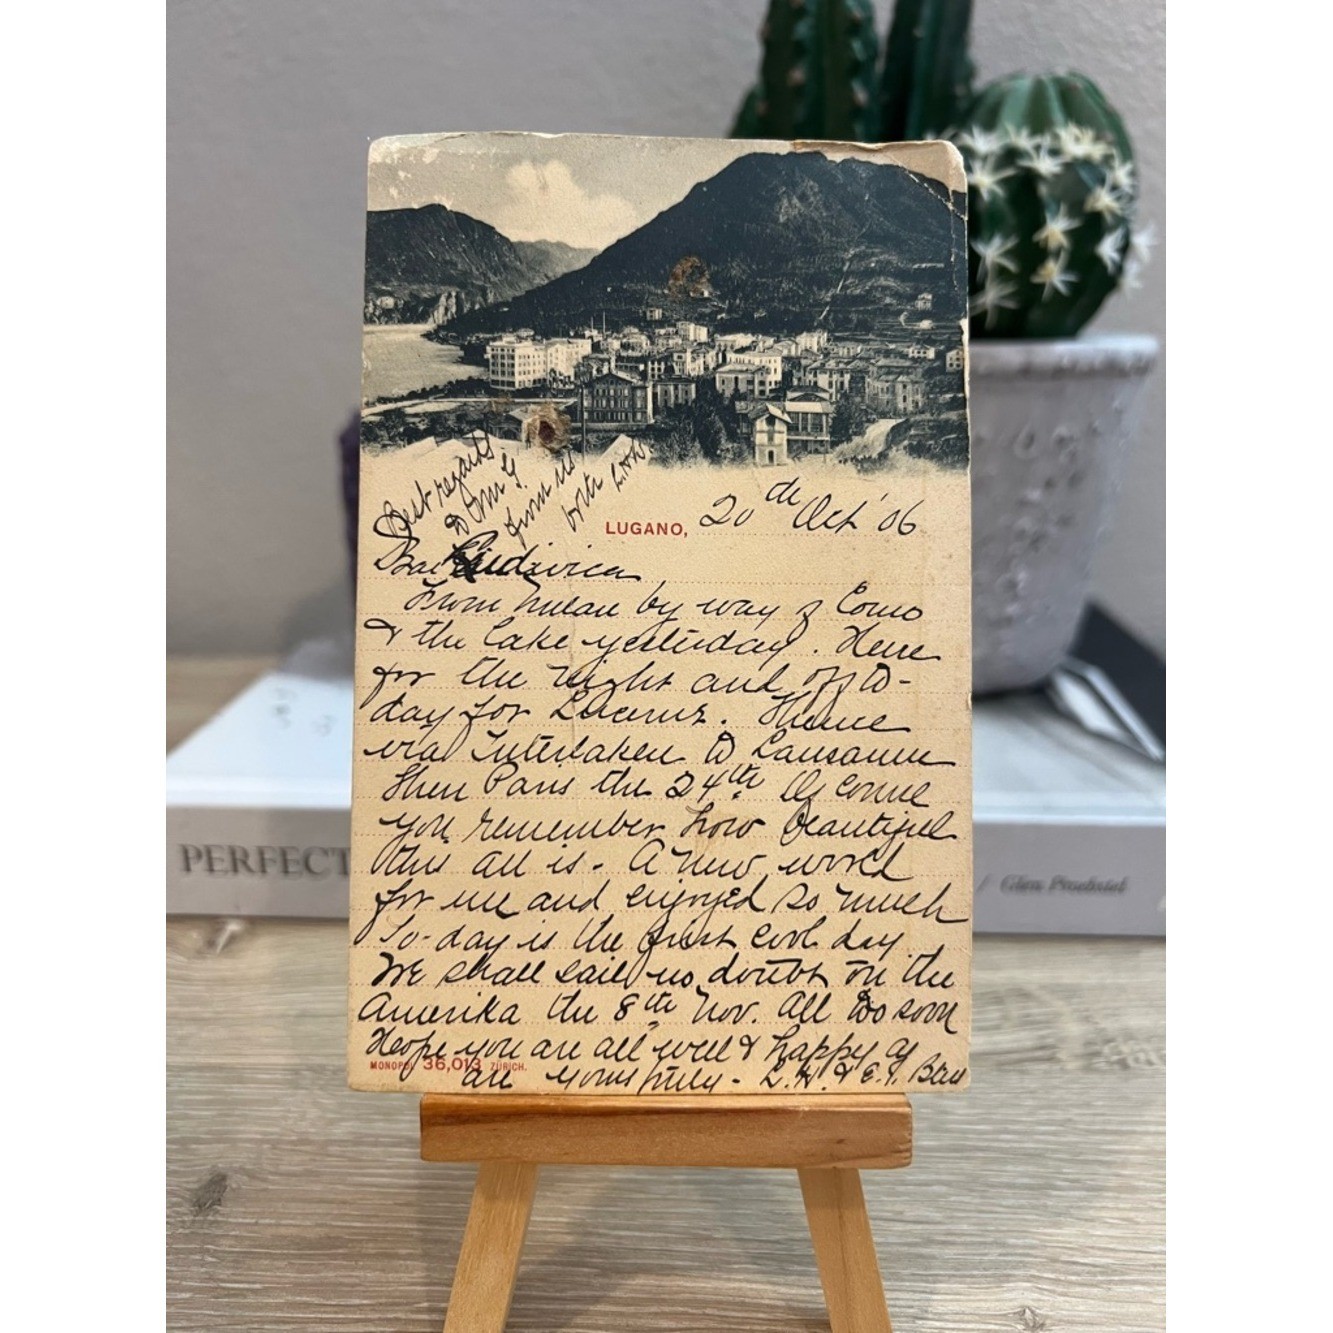 Best regards
to Mr G.
from us
both L.H.W.
LUGANO, 20th Oct '06
From Milan by way of Como
& the Lake yesterday. Here
for the night and off to-
day for Lucerne. Thence
via Interlaken to Lausanne
Then Paris the 24th Of course
you remember how beautiful
this all is. A new world
for me and enjoyed so much
To-day is the first cool day
We shall sail no doubt on the
Amerika the 8th Nov. All too soon
Hope you are all well & happy as
MONOPOL 36,013 ZÜRICH.
are yours truly - L.H. & E.
PERFECT
/ Glen Proebstel